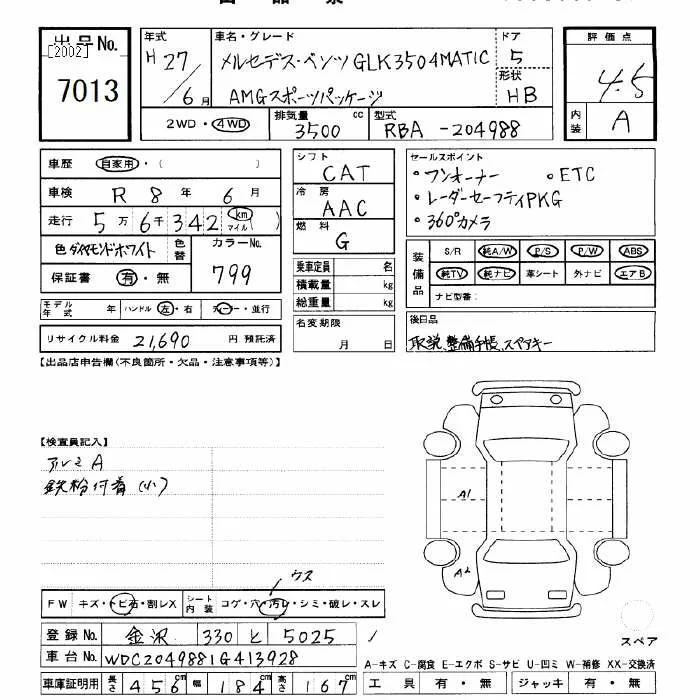 出品No. 年式 車名・グレード ドア 評価点
[2002]
7013 H27/6月 メルセデス・ベンツ GLK350 4MATIC 5 4.5
AMGスポーツパッケージ 形状 HB
2WD・4WD 排気量 3500 cc 型式 RBA-204988 内装 A
車歴 自家用・( ) シフト CAT セールスポイント
車検 R 8年 6月 冷房 AAC ・ワンオーナー ・ETC
走行 5万6千342 km マイル ( ) 燃料 G ・レーダーセーフティPKG
・360°カメラ
色 ダイヤモンドホワイト 色替 カラーNo. 799
保証書 有・無
乗車定員 名
積載量 kg
総重量 kg
装備品 S/R 純A/W P/S P/W ABS
純TV 純ナビ 革シート 外ナビ エアB
ナビ型番:
モデル年式 年 ハンドル 左・右 ディーラー・並行
名変期限 月 日
後日品
リサイクル料金 21,690 円 預託済
取説、整備手帳、スペアキー
【出品店申告欄(不良箇所・欠品・注意事項等)】
【検査員記入】
アルミA
鉄粉付着(小)
A1
A2
ウス
FW キズ・トビ石・割レX シート内装 コゲ・穴・汚レ・シミ・破レ・スレ
登録No. 金沢 330 と 5025
スペア
車台No. WDC2049881G413928
A-キズ C-腐食 E-エクボ S-サビ U-凹ミ W-補修 XX-交換済
車庫証明用 長さ 456cm 幅 184cm 高さ 167cm 工具 有・無 ジャッキ 有・無